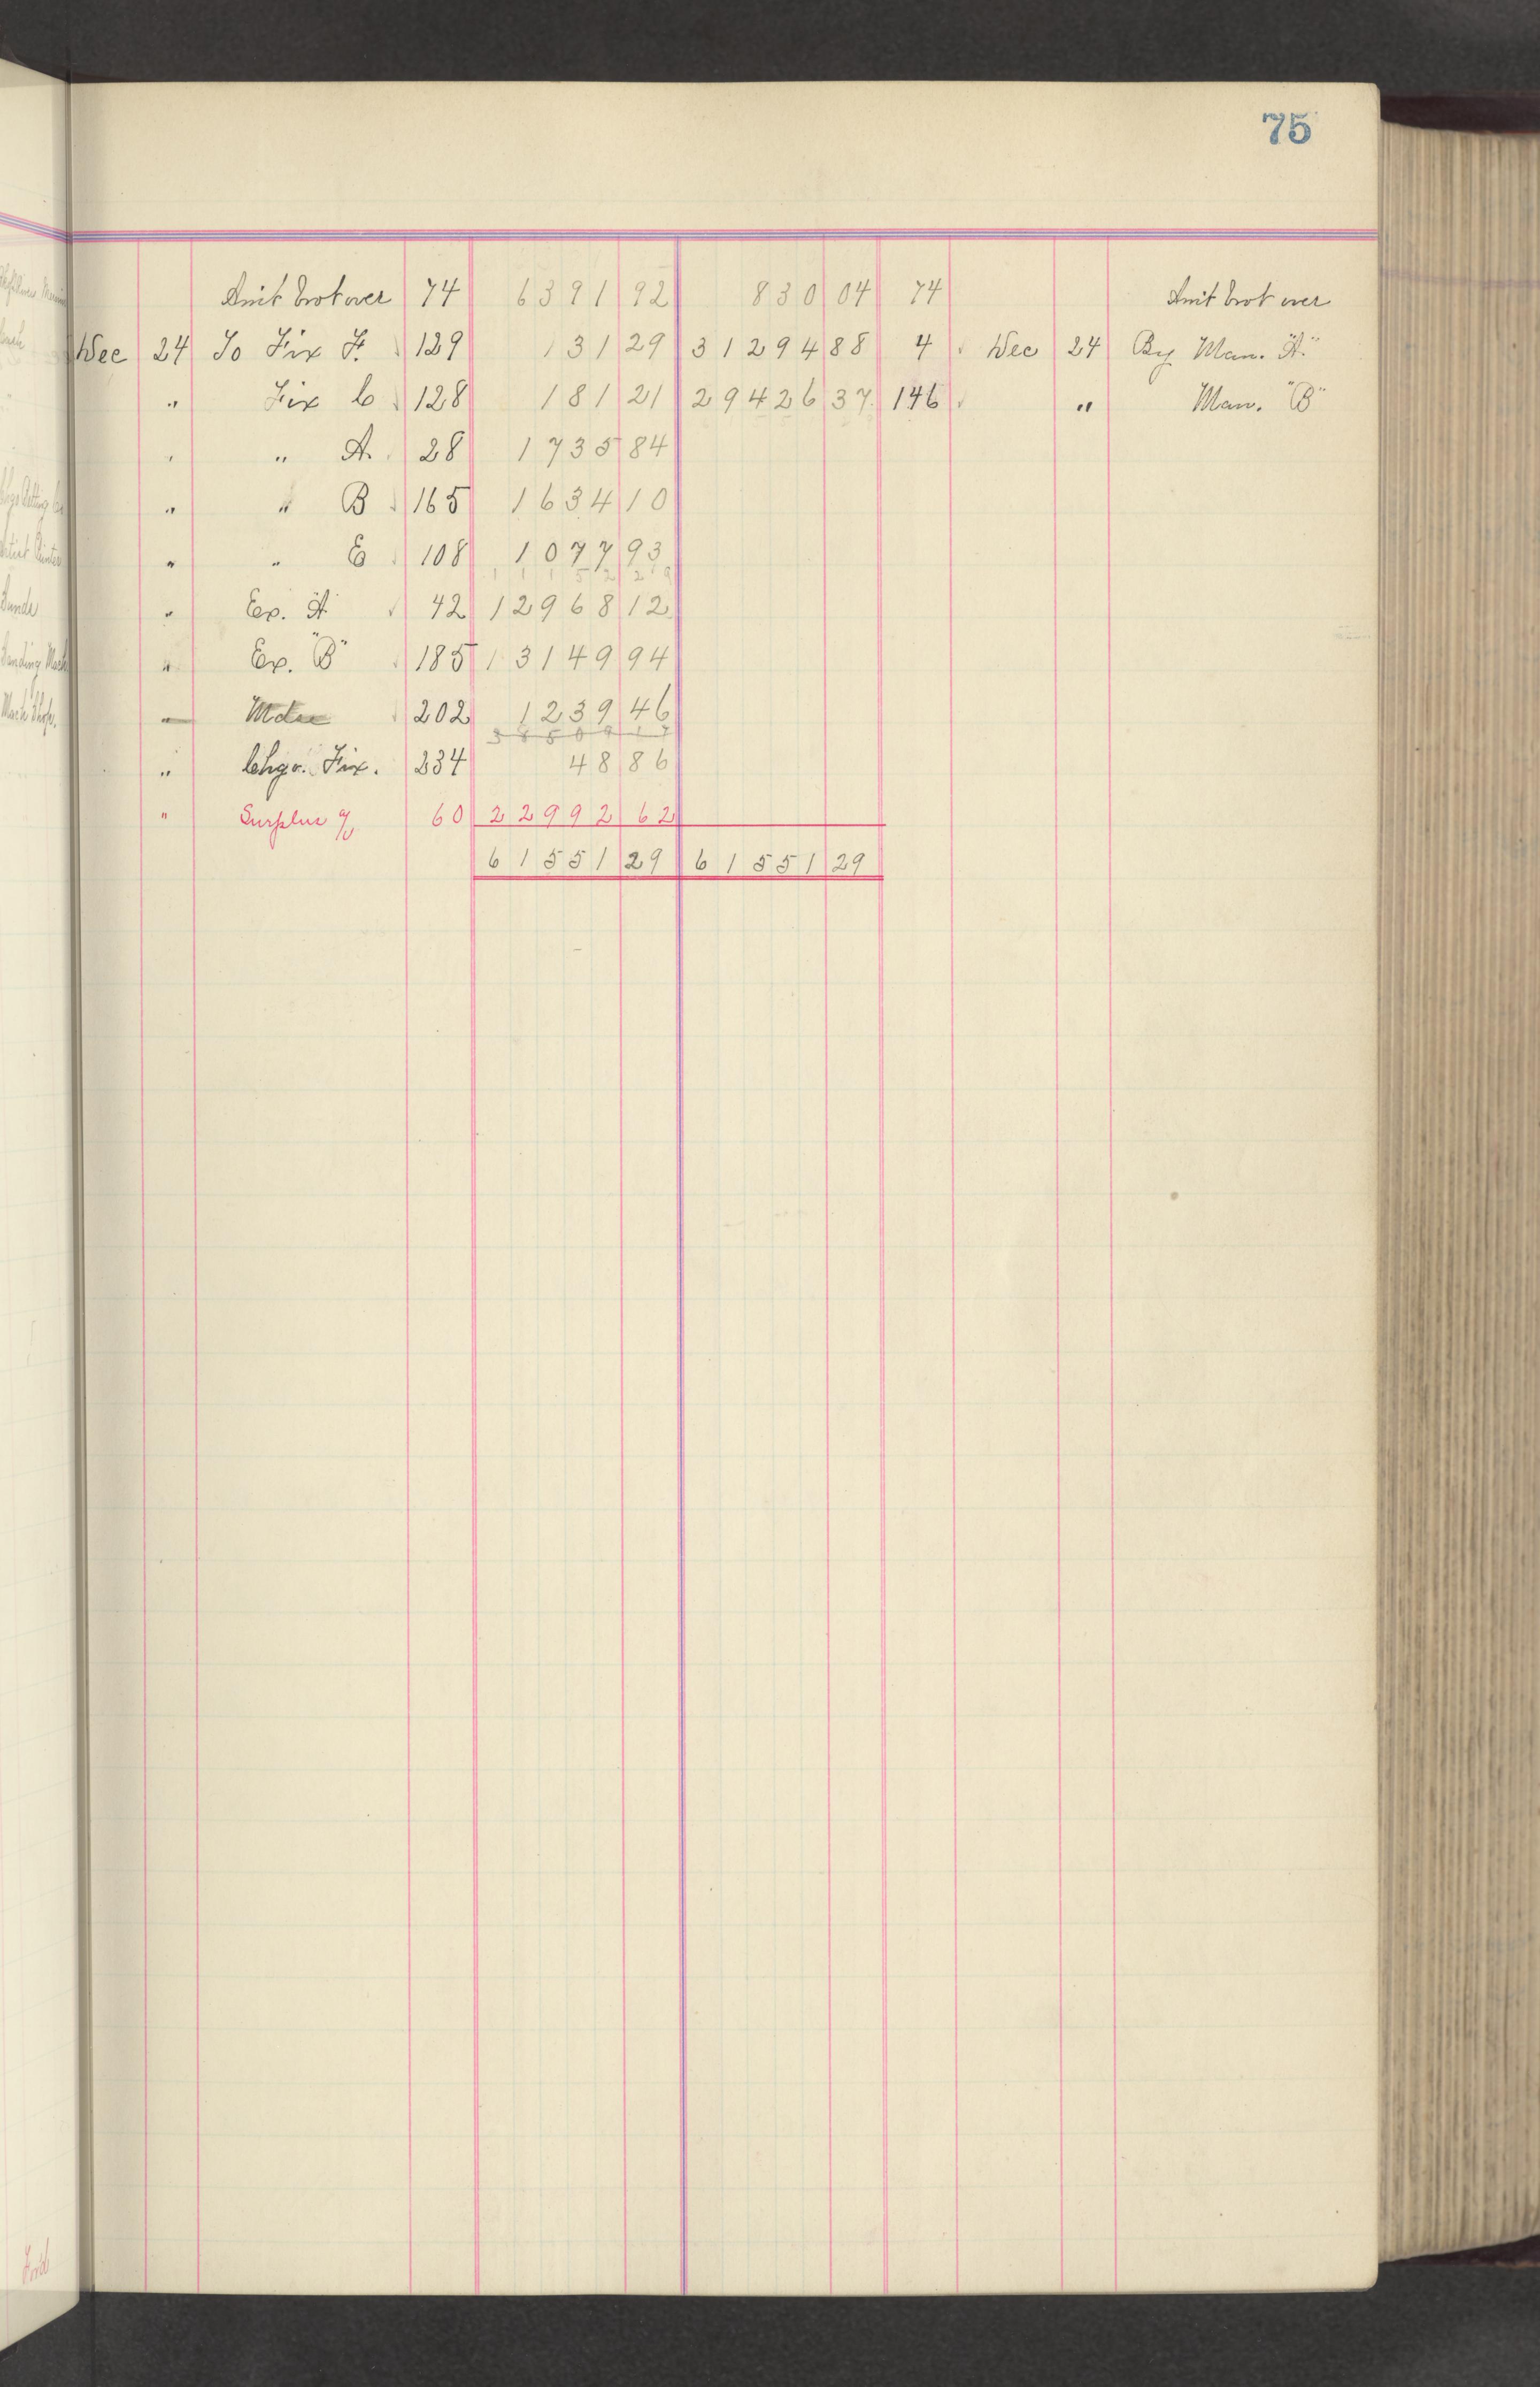 75
Amt brot over 74 6391 92 830 04 74 Amt brot over
Dec 24 To Fix F. 129 131 29 31294 88 4 Dec 24 By Man. "A"
" Fix C 128 181 21 29426 37 146 " Man. "B"
" " A. 28 1735 84
" " B 165 1634 10
" " E 108 1077 93
" Ex. "A" 42 12968 12
" Ex. "B" 185 13149 94
" Mdse 202 1239 46
" Chgo. Fix. 234 48 86
" Surplus a/c 60 22992 62
61551 29 61551 29